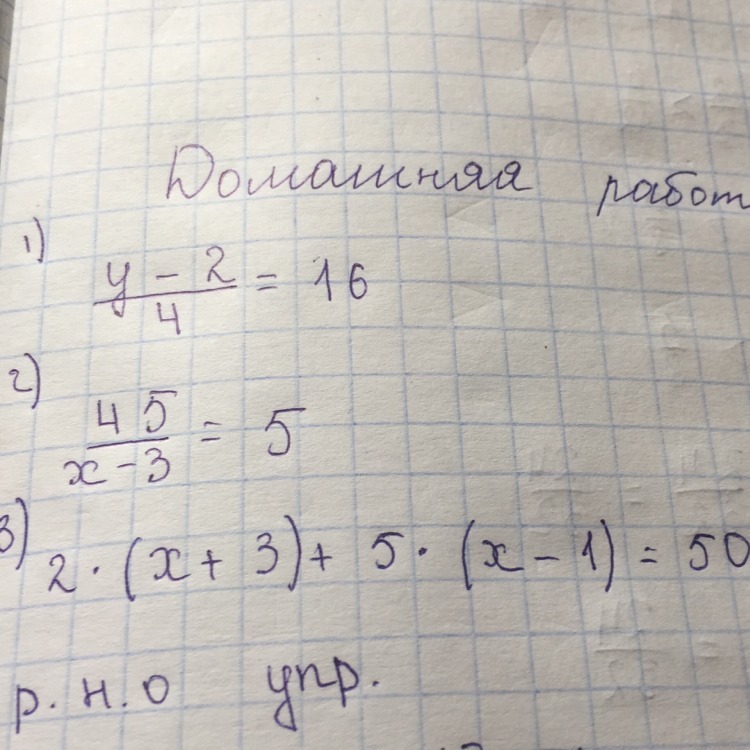 Домашняя работ
1) y - 2 / 4 = 16
2) 45 / x - 3 = 5
3) 2 · (x + 3) + 5 · (x - 1) = 50
р. н. о упр.